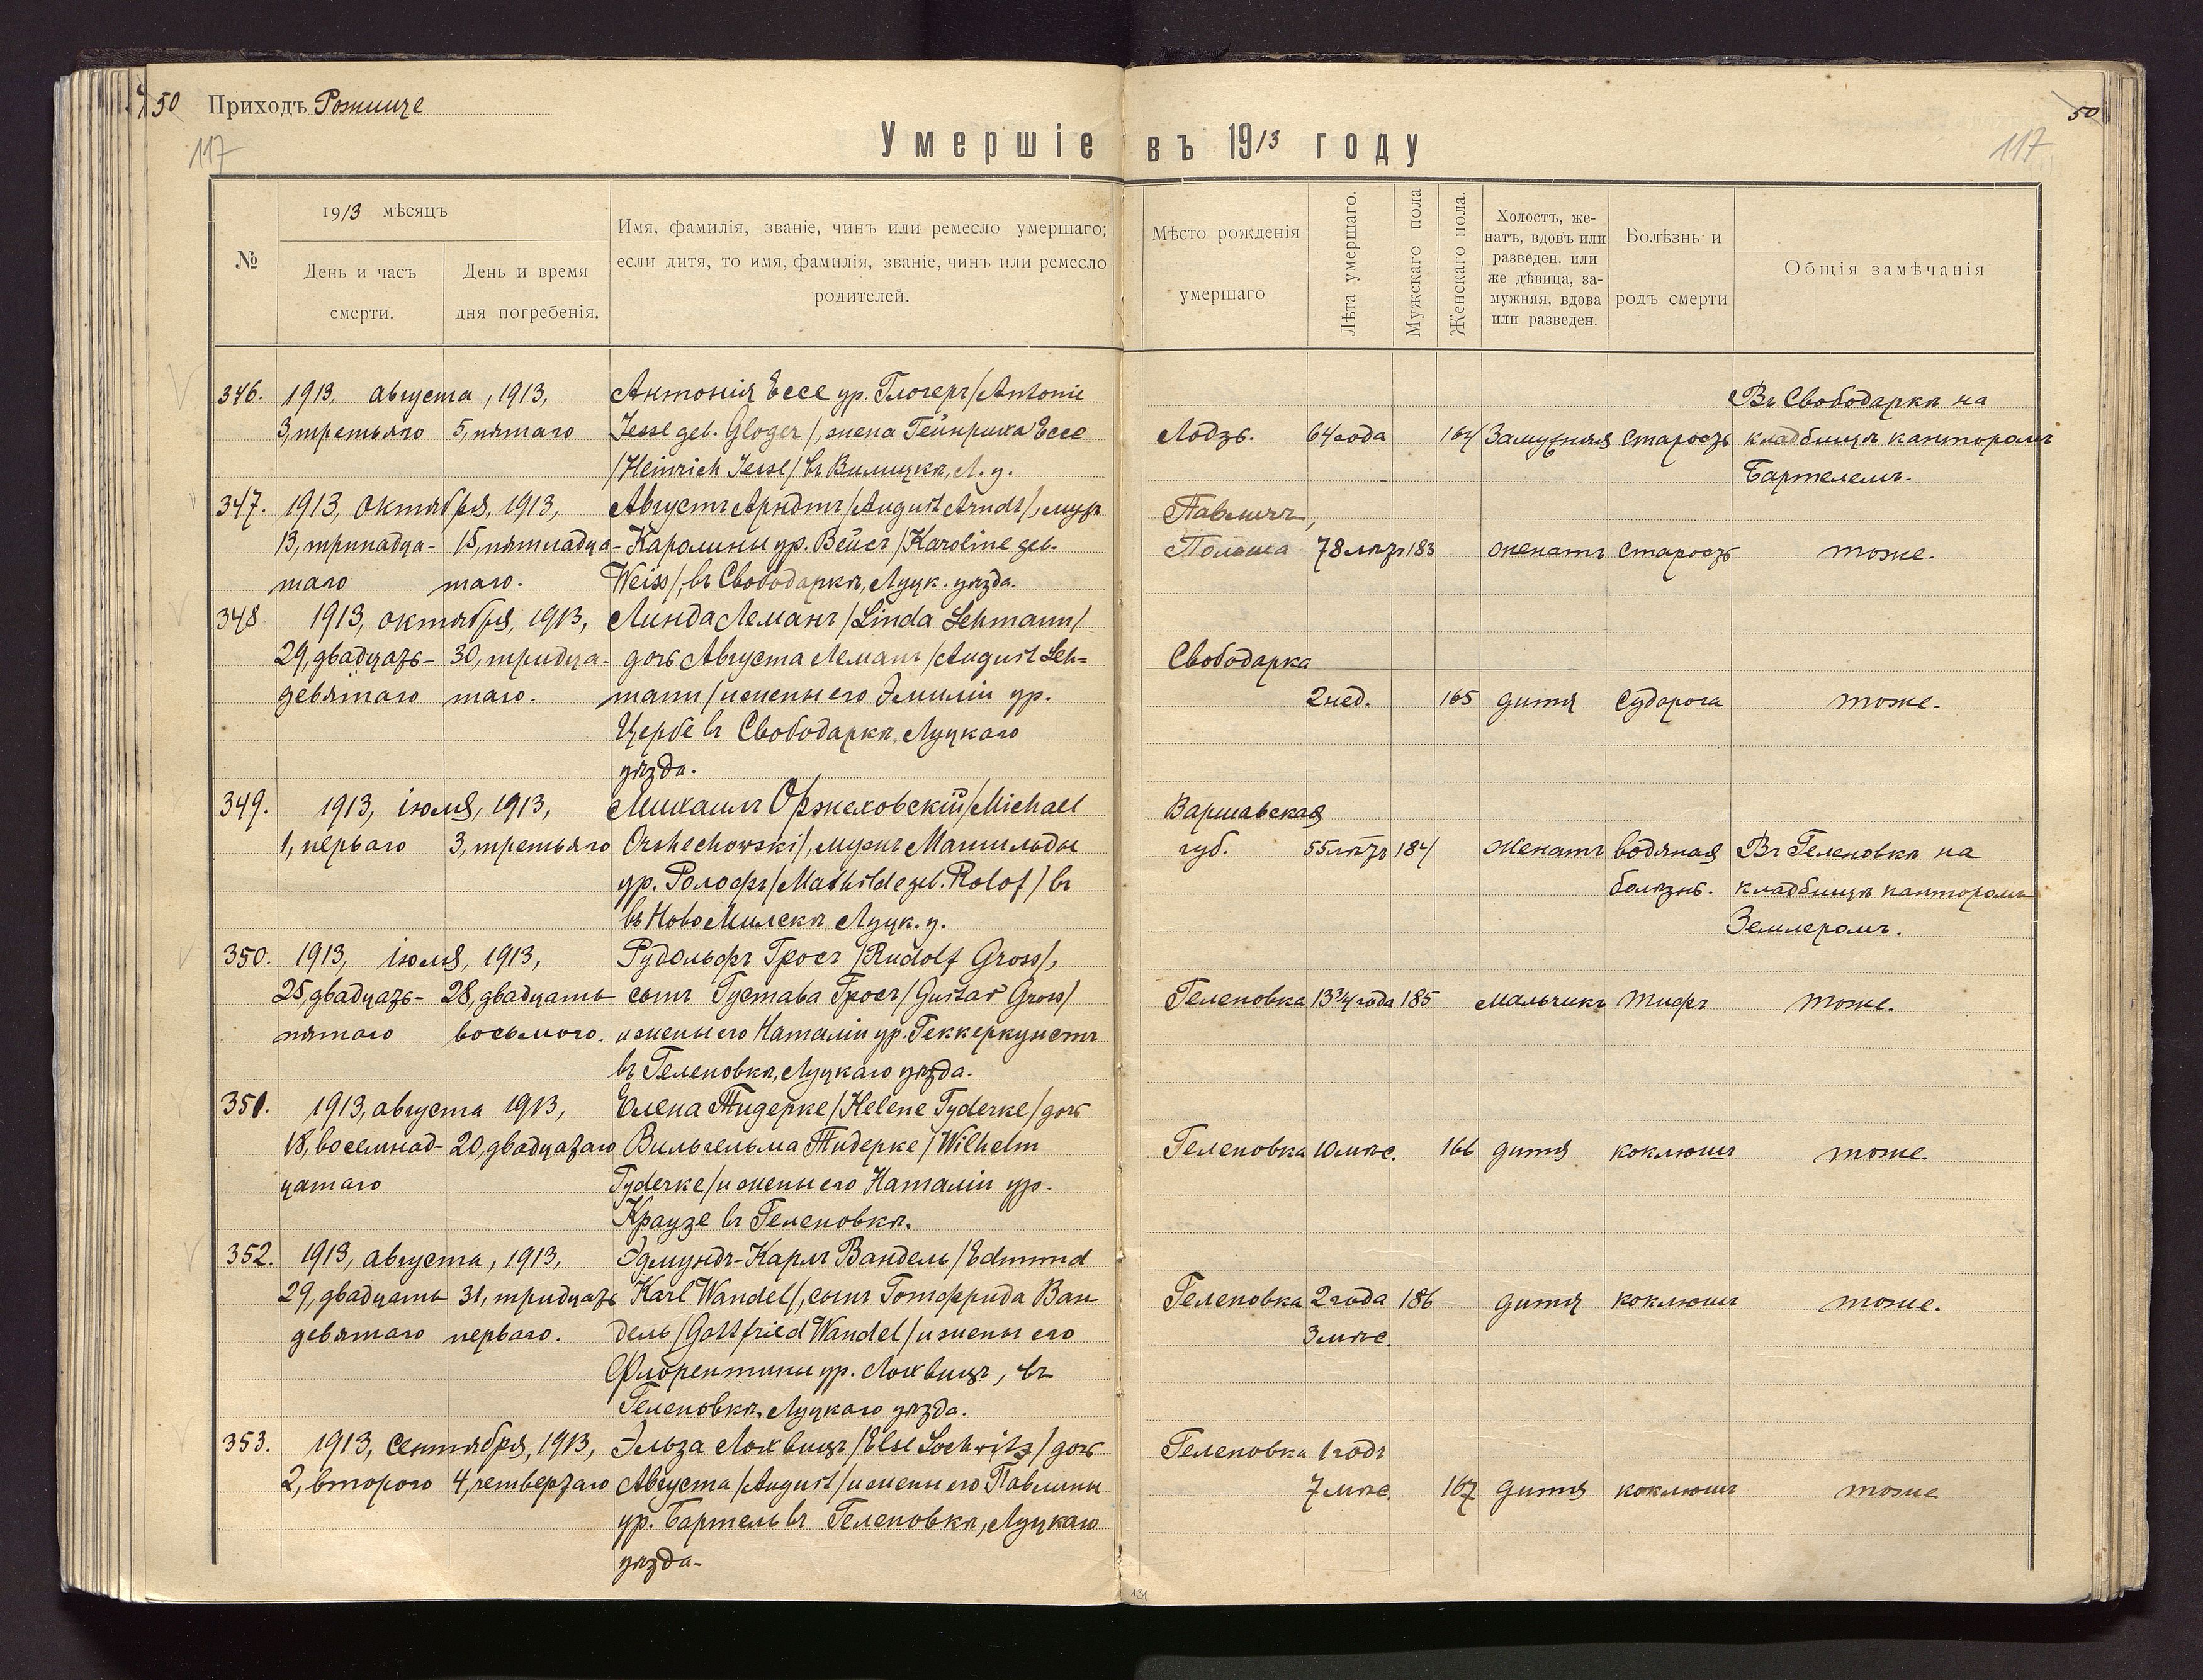 50 Приходъ Рожище
50
117
117
Умершіе въ 1913 году
№
1913 мѣсяцъ
День и часъ смерти.
День и время дня погребенія.
Имя, фамилія, званіе, чинъ или ремесло умершаго;
если дитя, то имя, фамилія, званіе, чинъ или ремесло
родителей.
Мѣсто рожденія
умершаго
Лѣта умершаго.
Мужскаго пола
Женскаго пола.
Холостъ, же-
натъ, вдовъ или
разведен. или
же дѣвица, за-
мужняя, вдова
или разведен.
Болѣзнь и
родъ смерти
Общія замѣчанія
346. 1913, августа, 1913, Антонія Ессе ур. Глогеръ /Antonie
3, третьяго 5, пятаго Jesse geb. Gloger/, жена Гейнриха Ессе
/Heinrich Jesse/ въ Вилицкѣ, Л. у.
Лодзь. 64 года 164 Замужняя Старость
Въ Свободаркѣ на
кладбищѣ канторомъ
Бартелемъ.
347. 1913, октября, 1913, Августъ Арндтъ /August Arndt/, мужъ
13, тринадца- 15, пятнадца- Каролины ур. Вейсъ /Karoline geb.
таго таго. Weiss/, въ Свободаркѣ, Луцк. уѣзда.
Павличъ,
Польша 78 лѣтъ 183 женатъ Старость тоже.
348. 1913, октября, 1913, Линда Леманъ /Linda Lehmann/
29, двадцать- 30, тридца- дочь Августа Леманъ /August Leh=
девятаго таго. mann/ и жены его Эмиліи ур.
Цербе въ Свободаркѣ, Луцкаго
уѣзда.
Свободарка
2 нед. 165 дитя Судорога тоже.
349. 1913, іюля, 1913, Михаилъ Оржеховскій /Michael
1, перваго 3, третьяго Orshechowski/, мужъ Матильды
ур. Ролофъ /Mathilde geb. Rolof/ въ
въ Ново Милскѣ, Луцк. у.
Варшавская
губ. 55 лѣтъ 184 женатъ водяная
болѣзнь.
Въ Геленовкѣ на
кладбищѣ канторомъ
Землеромъ.
350. 1913, іюля, 1913, Рудольфъ Гросъ /Rudolf Gross/,
25, двадцать- 28, двадцать сынъ Густава Гросъ /Gustav Gross/
пятаго восьмого. и жены его Наталіи ур. Геккеркунстъ
въ Геленовкѣ, Луцкаго уѣзда.
Геленовка 13 3/4 года 185 мальчикъ тифъ тоже.
351. 1913, августа 1913, Елена Тидерке /Helene Tyderke/ дочь
18, восемнад- 20, двадцатаго Вильгельма Тидерке /Wilhelm
цатаго Tyderke/ и жены его Наталіи ур.
Краузе въ Геленовкѣ.
Геленовка 10 мѣс. 166 дитя коклюшъ тоже.
352. 1913, августа, 1913, Эдмундъ-Карлъ Вандель /Edmund
29, двадцать 31, тридцать Karl Wandel/, сынъ Готфрида Ван
девятаго перваго. дель /Gottfried Wandel/ и жены его
Флорентины ур. Лохвицъ, въ
Геленовкѣ, Луцкаго уѣзда.
Геленовка 2 года 186 дитя коклюшъ тоже.
3 мѣс.
353. 1913, Сентября, 1913, Эльза Лохвицъ /Else Lochwitz/ дочь
2, второго 4, четвертаго Августа /August/ и жены его Павлины
ур. Бартель въ Геленовкѣ, Луцкаго
уѣзда.
Геленовка 1 годъ
7 мѣс. 167 дитя коклюшъ тоже
131